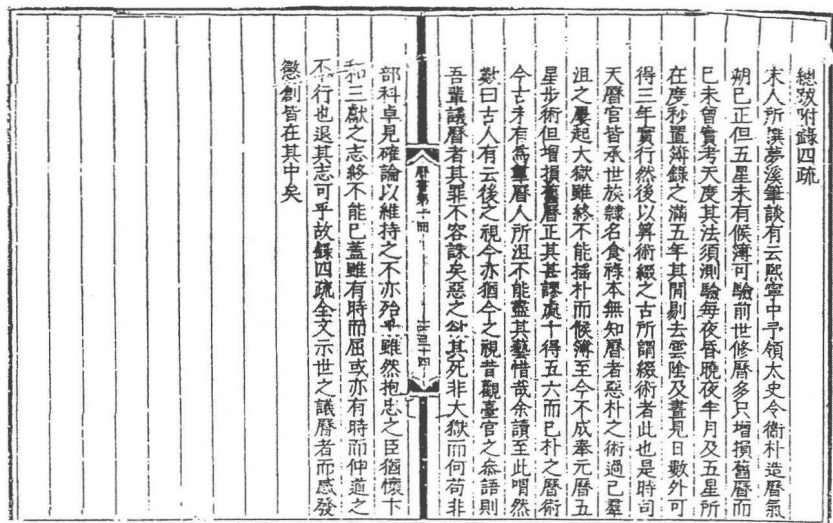 總跋附錄四疏
宋人所撰夢溪筆談有云熙寧中予領太史令衞朴造曆氣
朔已正但五星未有候簿可驗前世修曆多只增損舊曆而
已未曾實考天度其法須測驗每夜昏曉夜半月及五星所
在度秒置簿錄之滿五年其間剔去雲陰及晝見日數外可
得三年實行然後以算術綴之古所謂綴術者此也是時司
天曆官皆承世族隸名食祿本無知曆者惡朴之術過已羣
沮之屢起大獄雖終不能搖朴而候簿至今不成奉元曆五
星步術但增損舊曆正其甚謬處十得五六而已朴之曆術
今古未有為羣曆人所沮不能盡其藝惜哉余讀至此喟然
歎曰古人有云後之視今亦猶今之視昔觀臺官之恭語則
吾輩議曆者其罪不容誅矣惡之欲其死非大獄而何苟非
曆書第十冊
部科卓見確論以維持之不亦殆乎雖然抱忠之臣猶懷卞
和三獻之志終不能已蓋雖有時而屈或亦有時而伸道之
不行也退其志可乎故錄四疏全文示世之議曆者而感發
懲創皆在其中矣